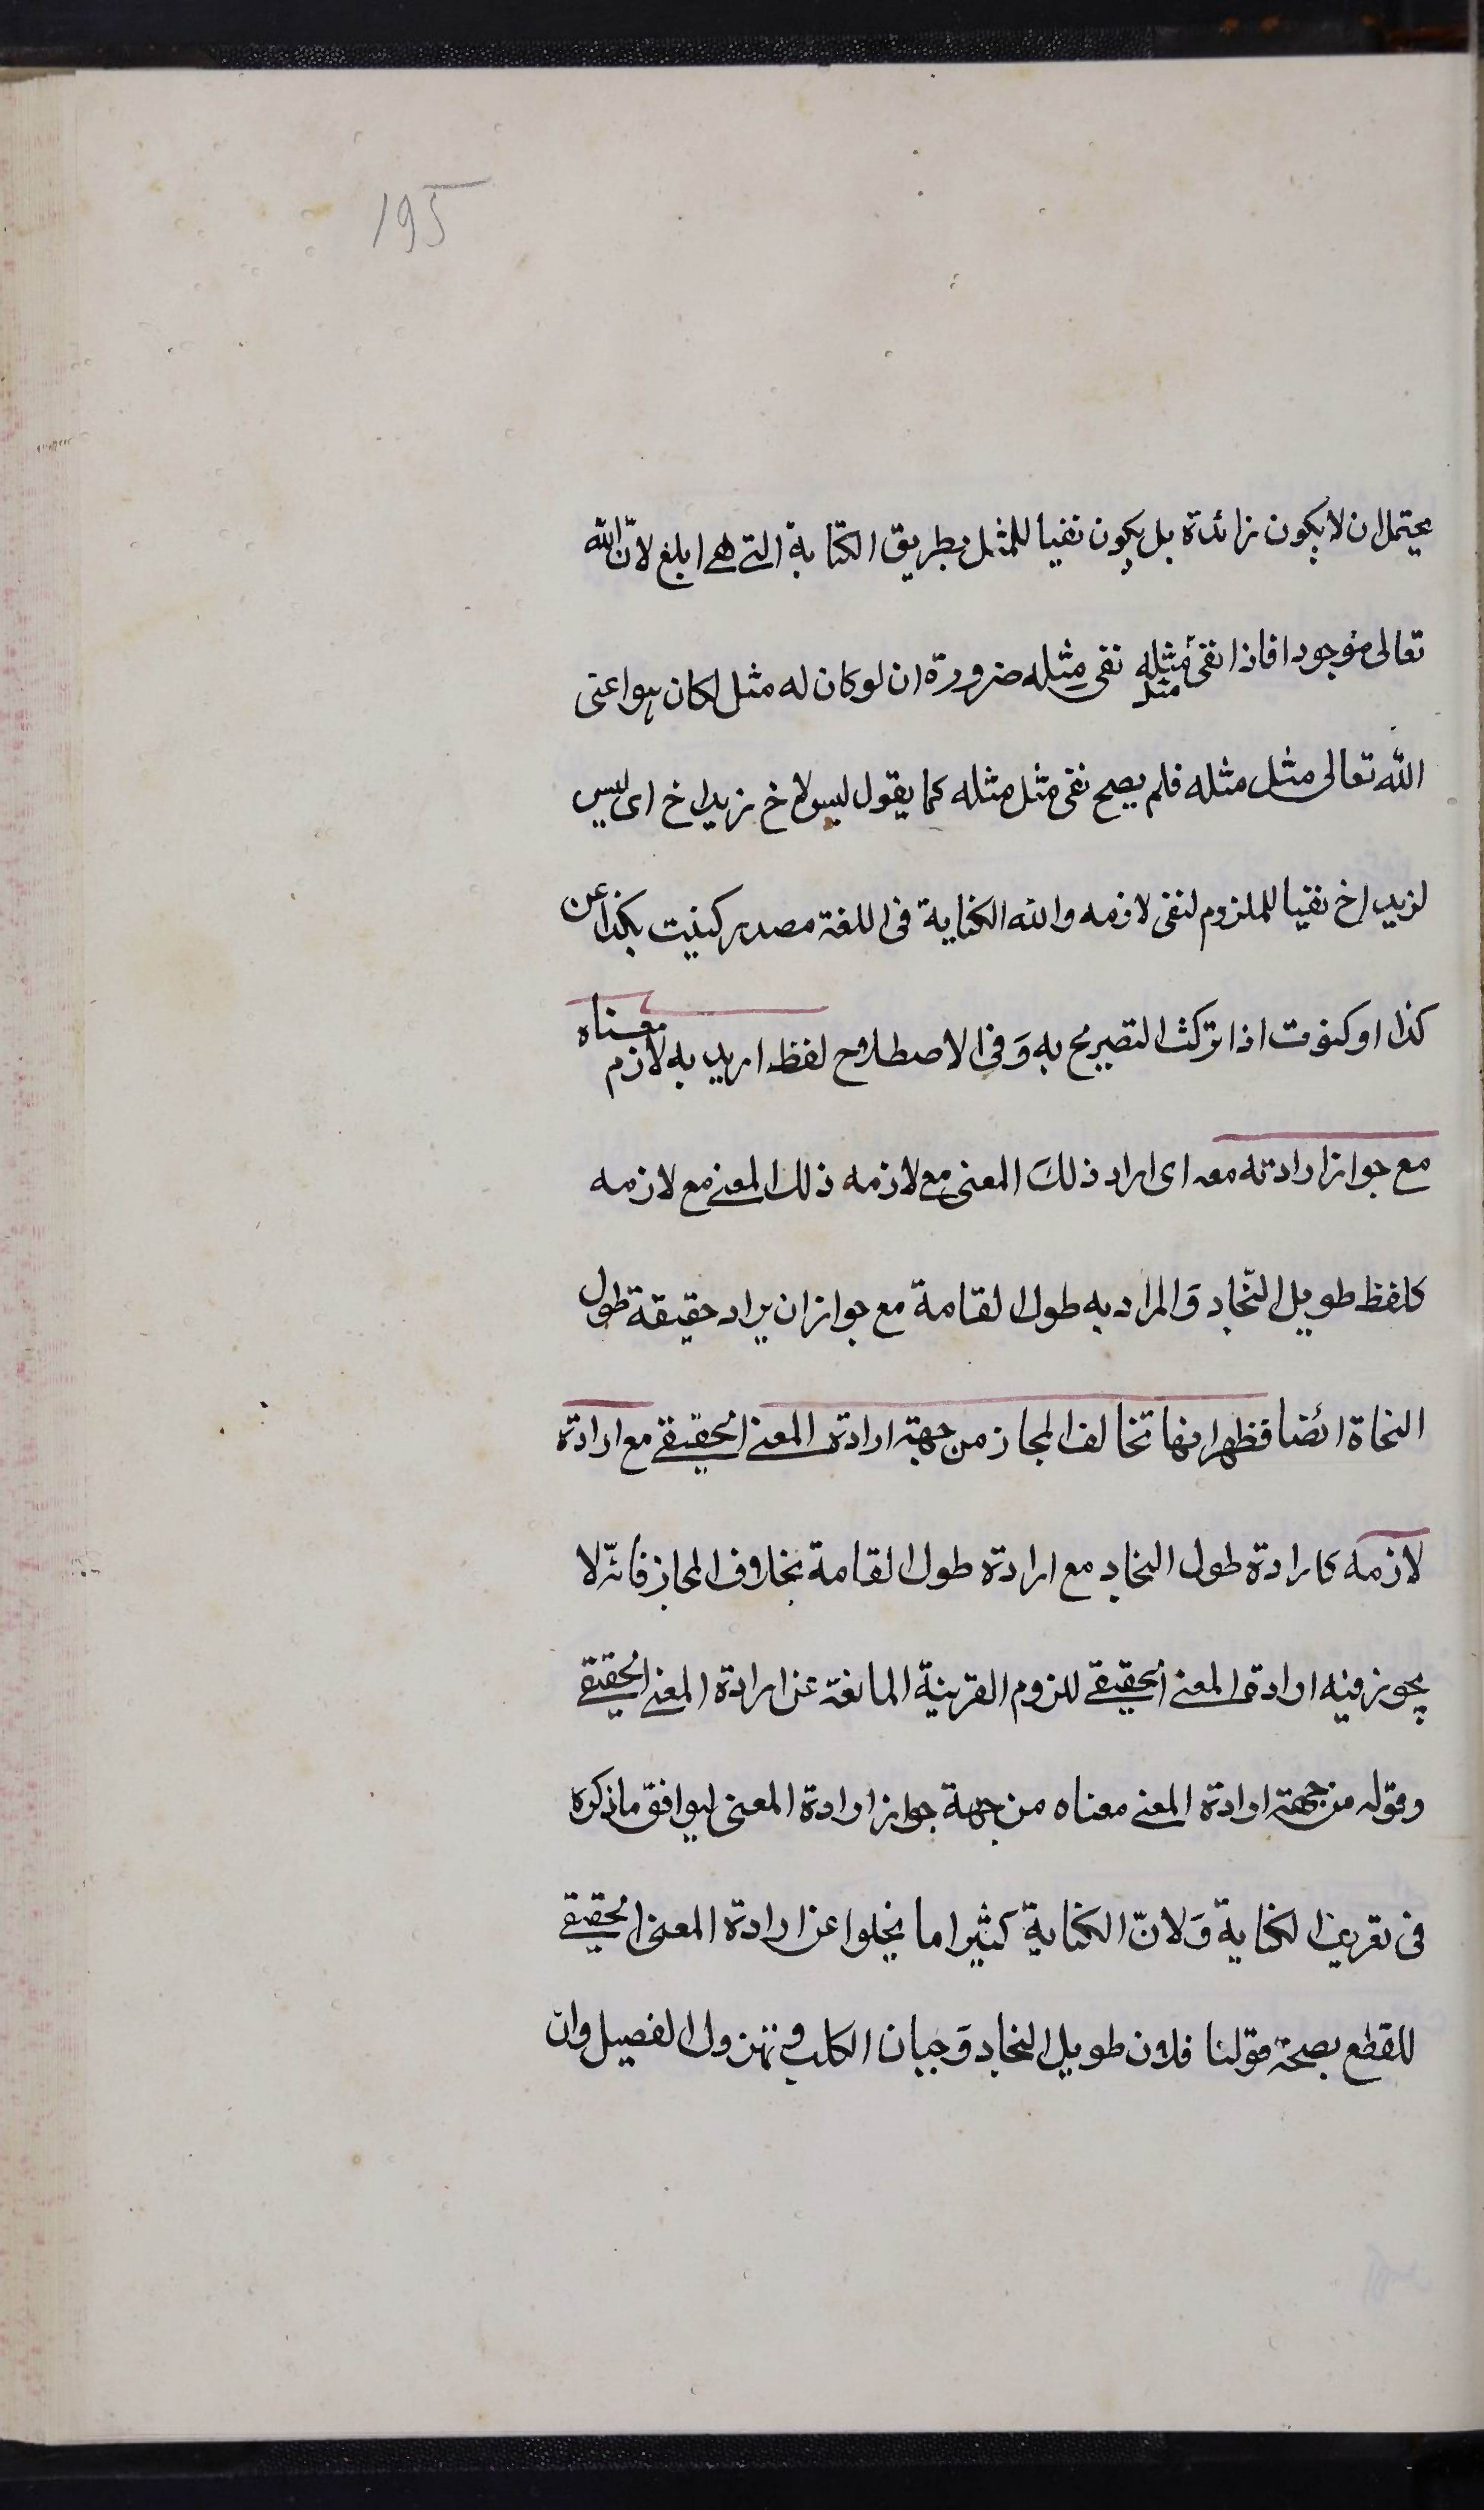 195
يحتمل ان لا يكون زائدة بل يكون نفيا للمثل بطريق الكناية التي هي ابلغ لانّ الله
تعالى موجود فاذا نفى مثل مثله نفى مثله ضرورة ان لو كان له مثل لكان هو اعنى
الله تعالى مثل مثله فلم يصح نفى مثل مثله كما يقول ليس لاخ زيد اخ اى ليس
لزيد اخ نفيا للملزوم لنفى لازمه والله الكناية فى اللغة مصدر كنيت بكذا عن
كذا او كنوت اذا تركت التصريح به وَفى الاصطلاح لفظ اريد به لازم معناه
مع جواز ارادته معه اى اراد ذلكَ المعنى مع لازمه ذلك المعنى مع لازمه
كلفظ طويل النّجاد وَالمراد به طول القامة مع جواز ان يراد حقيقة طول
النجاة ائضا فظهر انها تخالف المجاز من جهة ارادة المعنى الحقيقى مع ارادة
لازمه كارادة طول النجاد مع ارادة طول القامة بخلاف المجاز فانّه لا
يجوز فيه ارادة المعنى الحقيقى للزوم القرينة المانعة عن ارادة المعنى الحقيقى
وقوله من جهة ارادة المعنى معناه من جهة جواز ارادة المعنى ليوافق ما ذكره
فى تعريف الكناية وَلانّ الكناية كثيرا ما يخلوا عن ارادة المعنى الحقيقى
للقطع بصحة قولنا فلان طويل النجاد وَجبان الكلب و مهزول الفصيل وان